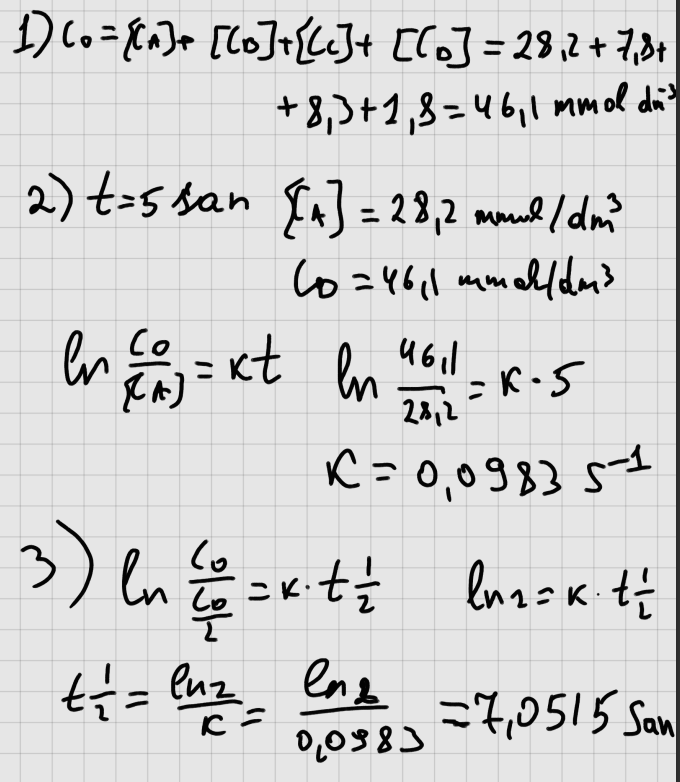 1) C₀ = [CA] + [CB] + [CC] + [CD] = 28,2 + 7,8 +
+ 8,3 + 1,8 = 46,1 mmol dm⁻³
2) t = 5 san [CA] = 28,2 mmol/dm³
C₀ = 46,1 mmol/dm³
ln C₀/[CA] = kt ln 46,1/28,2 = k · 5
K = 0,0983 s⁻¹
3) ln C₀/(C₀/2) = k · t 1/2 ln 2 = k · t 1/2
t 1/2 = ln2/k = ln 2/0,0983 = 7,0515 san